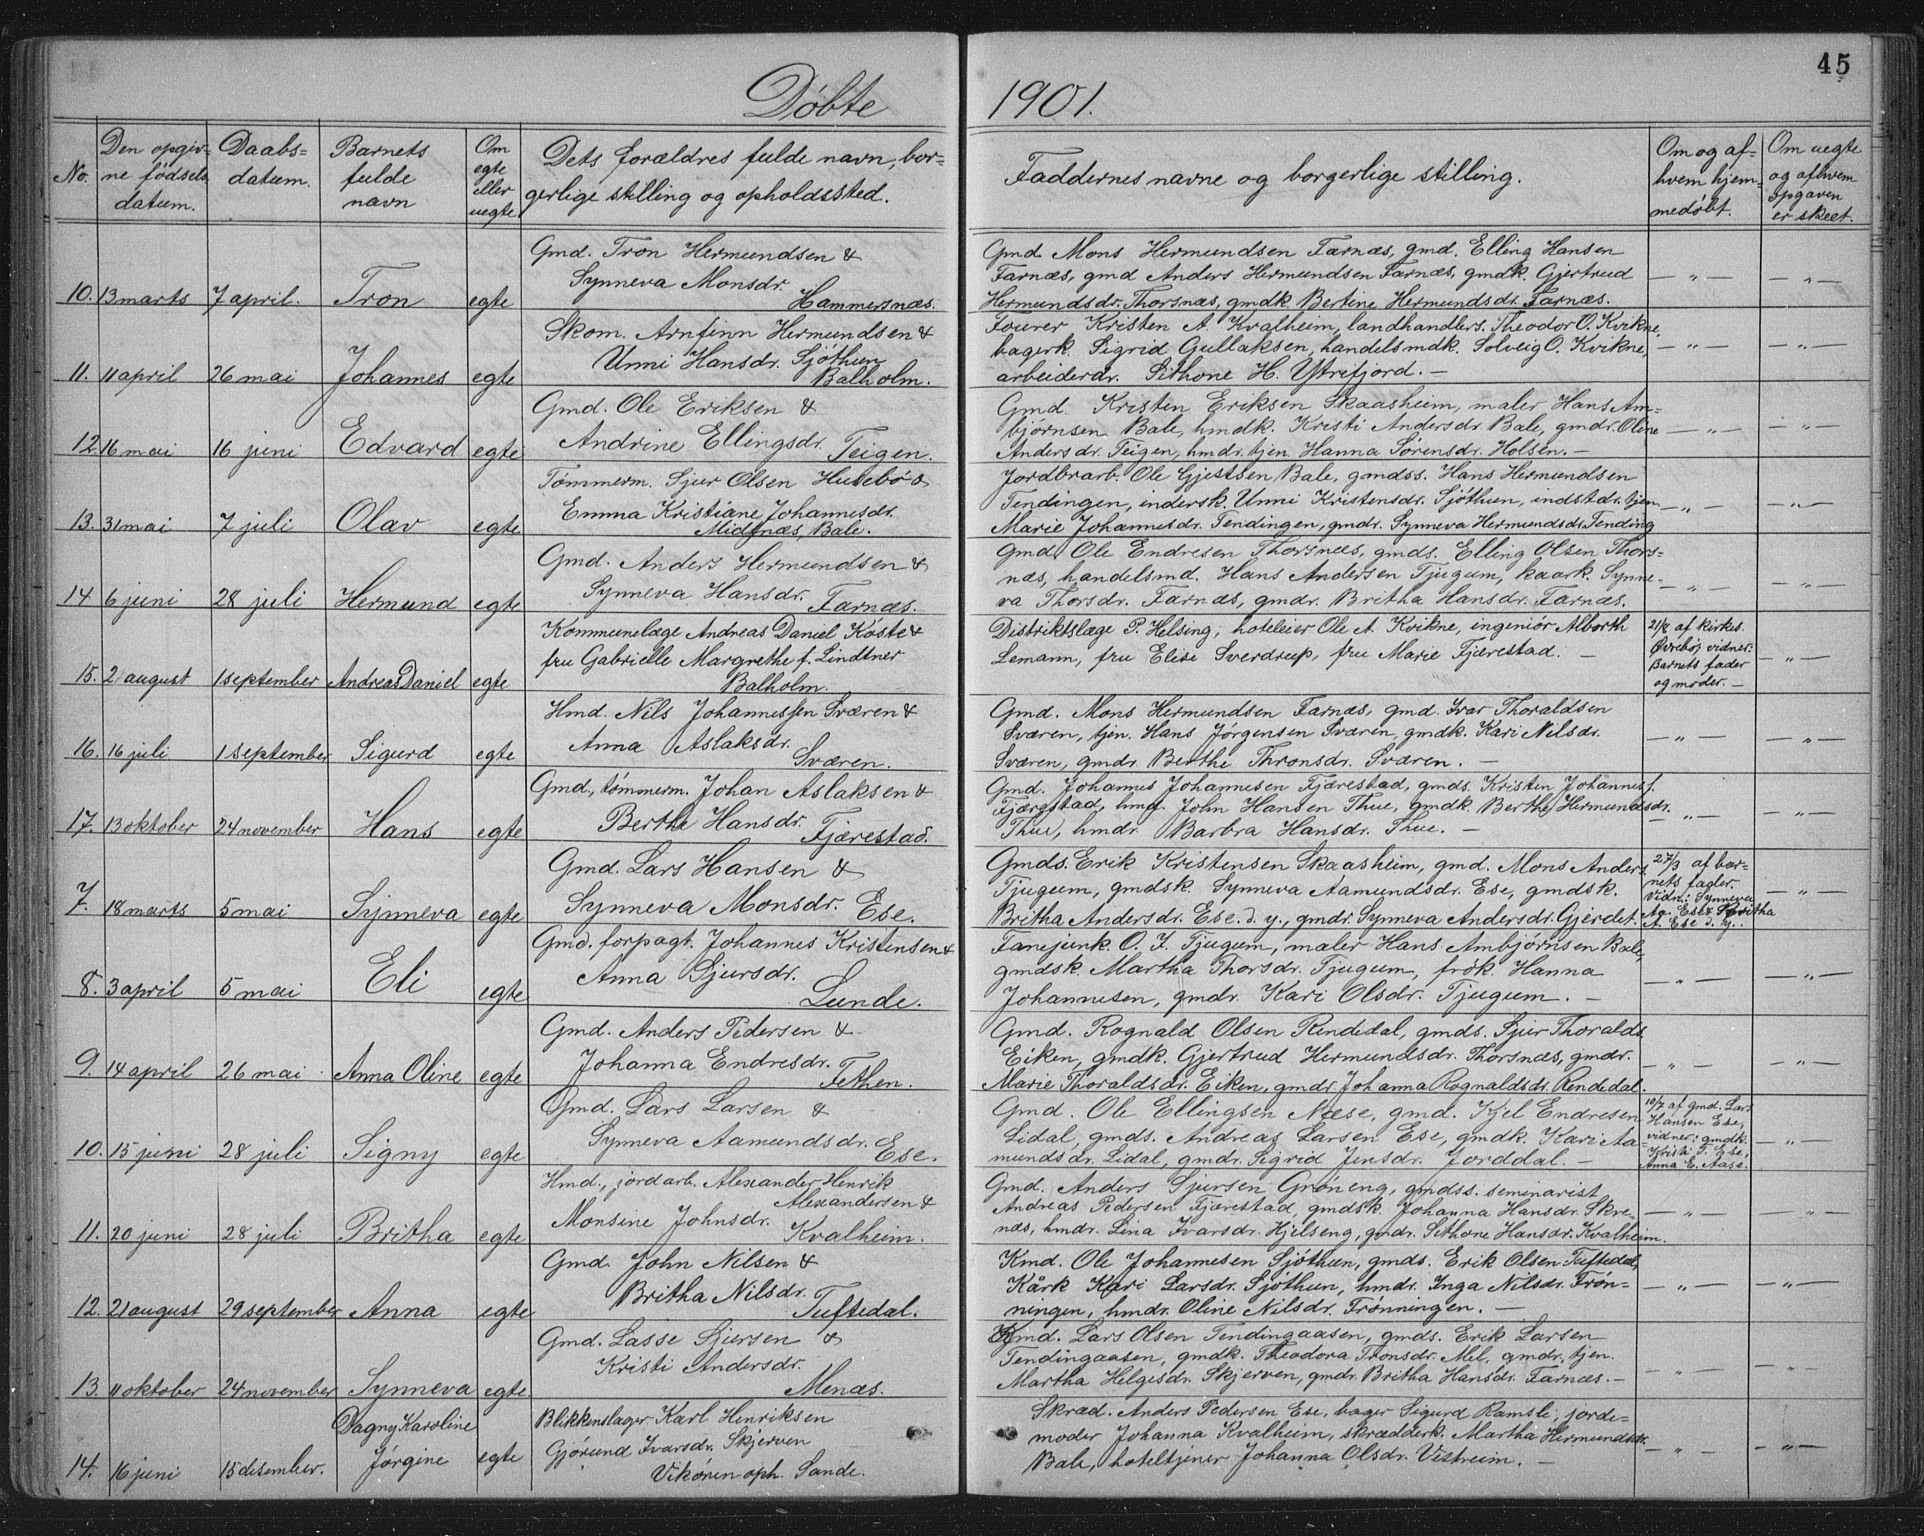 45
Døbte 1901.
No. | Den opgiv-ne fødsels datum. | Daabs-datum. | Barnets fulde navn | Om egte eller uegte | Dets forældres fulde navn, bor-gerlige stilling og opholdssted. | Faddernes navne og borgerlige stilling. | Om og af hvem hjem-medøbt. | Om uegte og af hvem opgaven er skeet.
Gmd. Tron Hermundsen &
Synneva Monsdr.
10. 13 marts 7 april. Tron egte Hammersnæs.
Gmd. Mons Hermundsen Farnæs, gmd. Elling Hansen
Farnæs, gmd Anders Hermundsen Farnæs, gmdk. Gjertrud — " — — " —
Hermundsdr. Thorsnæs, gmdk Bertine Hermundsdr. Farnæs.
Skom. Arnfinn Hermundsen &
Unni Hansdr. Sjøthun
11. 11 april 26 mai Johannes egte Balholm.
Fourer Kristen A. Kvalheim, landhandlers. Theodor O. Kvikne,
bagerk. Sigrid Gullaksen, handelsmdk. Solveig O. Kvikne, — " — — " —
arbeiderdr. Sithone H. Ytrefjord. —
Gmd. Ole Eriksen &
Andrine Ellingsdr.
12. 16 mai 16 juni Edvard egte Teigen.
Gmd. Kristen Eriksen Skaasheim, maler Hans Am-
bjørnsen Bale, hmdk. Kristi Andersdr. Bale, gmdr. Oline — " — — " —
Andersdr. Teigen, hmdr. tjen Hanna Sørensdr. Holsen. —
Tømmerm. Sjur Olsen Husebø &
Emma Kristiane Johannesdr.
13. 31 mai 7 juli Olav egte Midtnæs, Bale.
Jordbrarb. Ole Gjestsen Bale, gmdss. Hans Hermundsen
Tendingen, indersk. Unni Kristensdr. Sjøthun, indstdr. tjen — " — — " —
Marie Johannesdr. Tendingen, gmdr. Synneva Hermundsdr. Tending
Gmd. Anders Hermundsen &
Synneva Hansdr.
14 6 juni 28 juli Hermund egte Farnæs.
Gmd. Ole Endresen Thorsnæs, gmds. Elling Olsen Thors-
næs, handelsmd. Hans Andersen Tjugum, kaark. Synne- — " — — " —
va Thorsdr. Farnæs, gmdr. Britha Hansdr. Farnæs.
Kommunelæge Andreas Daniel Køste &
fru Gabrielle Margrethe f. Lindtner
15. 2 august 1 september Andreas Daniel egte Balholm.
Distriktslæge P. Helsing, hoteleier Ole A. Kvikne, ingeniør Alborth
Lemann, fru Elise Sverdrup, fru Marie Fjærestad. —
21/8 af kirkes.
Øvrebø, vidner:
Barnets fader — " —
og moder. —
Hmd. Nils Johannessen Sværen &
Anna Aslaksdr.
16. 16 juli 1 september Sigurd egte Sværen.
Gmd. Mons Hermundsen Farnæs, gmd. Ivar Thoraldsen
Sværen, tjen. Hans Jørgensen Sværen, gmdk. Kari Nilsdr. — " — — " —
Sværen, gmdr. Berthe Thronsdr. Sværen. —
Gmd., tømmerm. Johan Aslaksen &
Berthe Hansdr.
17. 13 oktober 24 november Hans egte Fjærestad.
Gmd. Johannes Johannesen Fjærestad, gmds. Kristen Johannesf.
Fjærestad, hmd. John Hansen Thue, gmdk Berthe Hermundsdr.
Thue, hmdr. Barbra Hansdr. Thue. — — " — — " —
Gmd. Lars Hansen &
Synneva Monsdr.
7. 18 marts 5 mai Synneva egte Ese.
Gmds. Erik Kristensen Skaasheim, gmd. Mons Anders.
Tjugum, gmdsk. Synneva Aamundsdr. Ese, gmdsk.
Britha Andersdr. Ese d. y., gmdr. Synneva Andersdr. Gjerdet.
27/3 af bar-
nets fader.
Vidn.: Synneva — " —
Aa. Ese & Britha
A. Ese d. y.
Gmd. forpagt. Johannes Kristensen &
Anna Sjursdr.
8. 3 april 5 mai Eli egte Lunde.
Fanejunk. O. J. Tjugum, maler Hans Ambjørnsen Bale,
gmdsk. Martha Thorsdr. Tjugum, frøk. Hanna — " — — " —
Johannesen, gmdr. Kari Olsdr. Tjugum. —
Gmd. Anders Pedersen &
Johanna Endresdr.
9. 14 april 26 mai Anna Oline egte Fethen.
Gmd. Rognald Olsen Rendedal, gmds. Sjur Thoralds.
Eiken, gmdk. Gjertrud Hermundsdr. Thorsnæs, gmdr. — " — — " —
Marie Thoraldsdr. Eiken, gmdr Johanna Rognaldsdr. Rendedal.
Gmd. Lars Larsen &
Synneva Aamundsdr.
10. 15 juni 28 juli Signy egte Ese.
Gmd. Ole Ellingsen Næse, gmd. Kjel Endresen
Lidal, gmds. Andreas Larsen Ese, gmdk. Kari Aa-
mundsdr. Lidal, gmdr. Sigrid Jensdr. Jorddal. —
10/7 af gmd. Lars
Hansen Ese,
vidner: gmdk. — " —
Kristi T. Ese,
Anna E. Aase.
Hmd., jordarb. Alexander Henrik
Alexandersen &
Monsine Johnsdr.
11. 20 juni 28 juli Britha egte Kvalheim.
Gmd. Anders Sjursen Grøneng, gmdss. seminarist
Andreas Pedersen Fjærestad, gmdsk. Johanna Hansdr. Skre- — " — — " —
næs, hmdr. Lina Ivarsdr. Hjelseng, gmdr. Sithone Hansdr. Kvalheim.
Gmd. John Nilsen &
Britha Nilsdr.
12. 21 august 29 september Anna egte Tuftedal.
Kmd. Ole Johannesen Sjøthun, gmds. Erik Olsen Tuftedal,
Kårk Kari Larsdr. Sjøthun, hmdr. Inga Nilsdr. Trøn- — " — — " —
ningen, hmdr. Oline Nilsdr. Trønningen. —
Gmd. Lasse Sjursen &
Kristi Andersdr.
13. 11 oktober 24 november Synneva egte Menæs.
Gmd. Lars Olsen Tendingaasen, gmds. Erik Larsen
Tendingaasen, gmdk. Theodora Tronsdr. Mel, gmdr. tjen. — " — — " —
Martha Helgesdr. Skjerven, gmdr. Britha Hansdr. Farnæs. —
Dagny Karoline Blikkenslager Karl Henriksen
Jørgine egte Gjørund Ivarsdr. Skjerven
14. 16 juni 15 desember. Vikøren oph. Sande.
Skræd. Anders Pedersen Ese, bager Sigurd Ramsli, jorde-
moder Johanna Kvalheim, skrædderk. Martha Hermundsdr. — " — — " —
Bale, hoteltjener Johanna Olsdr. Vistreim. —